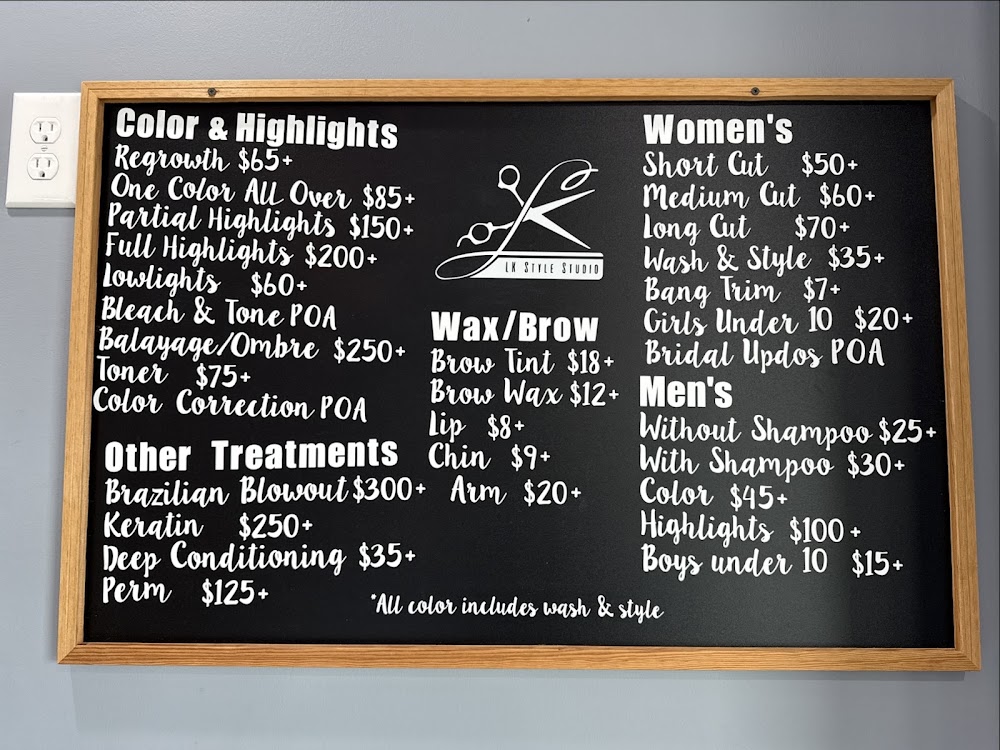 Color & Highlights
Regrowth $65+
One Color All Over $85+
Partial Highlights $150+
Full Highlights $200+
Lowlights $60+
Bleach & Tone POA
Balayage/Ombre $250+
Toner $75+
Color Correction POA
Other Treatments
Brazilian Blowout $300+
Keratin $250+
Deep Conditioning $35+
Perm $125+
LK Style Studio
Wax/Brow
Brow Tint $18+
Brow Wax $12+
Lip $8+
Chin $9+
Arm $20+
Women's
Short Cut $50+
Medium Cut $60+
Long Cut $70+
Wash & Style $35+
Bang Trim $7+
Girls Under 10 $20+
Bridal Updos POA
Men's
Without Shampoo $25+
With Shampoo $30+
Color $45+
Highlights $100+
Boys under 10 $15+
*All color includes wash & style